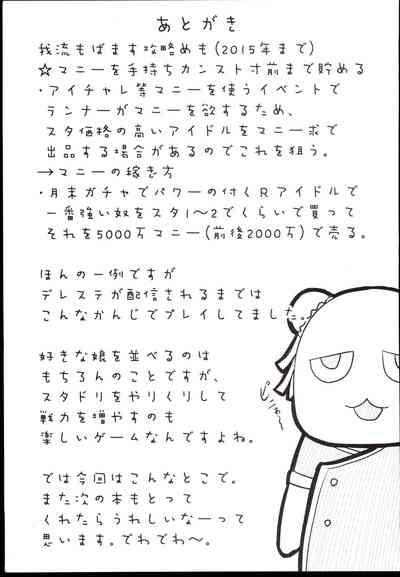 あとがき
我流もばます攻略めも(2015年まで)
☆マニーを手持ちカンスト寸前まで貯める
・アイチャレ等マニーを使うイベントで
ランナーがマニーを欲するため、
スタ価格の高いアイドルをマニー求で
出品する場合があるのでこれを狙う。
→マニーの稼ぎ方
・月末ガチャでパワーの付くRアイドルで
一番強い奴をスタ1~2でくらいで買って
それを5000万マニー(前後2000万)で売る。
ほんの一例ですが
デレステが配信されるまでは
こんなかんじでプレイしてました。
好きな娘を並べるのは
もちろんのことですが、
スタドリをやりくりして
戦力を増やすのも
楽しいゲームなんですよね。
では今回はこんなとこで。
また次の本もとって
くれたらうれしいなーって
思います。でわでわ~。